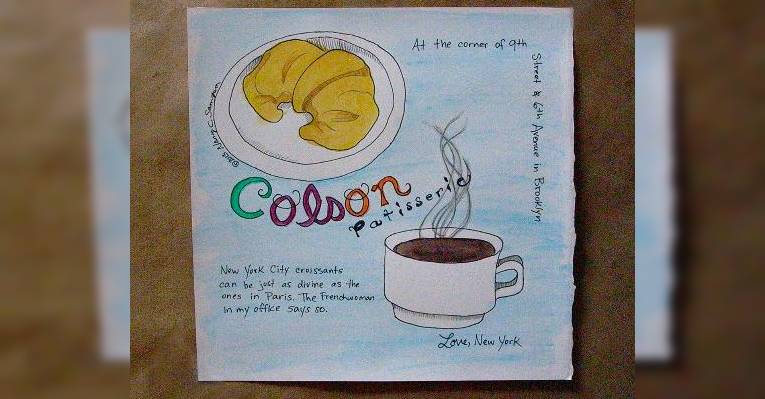 At the corner of 9th
Street & 6th Avenue in Brooklyn
Colson
Patisserie
New York City croissants
can be just as divine as the
ones in Paris. The Frenchwoman
in my office says so.
Love, New York